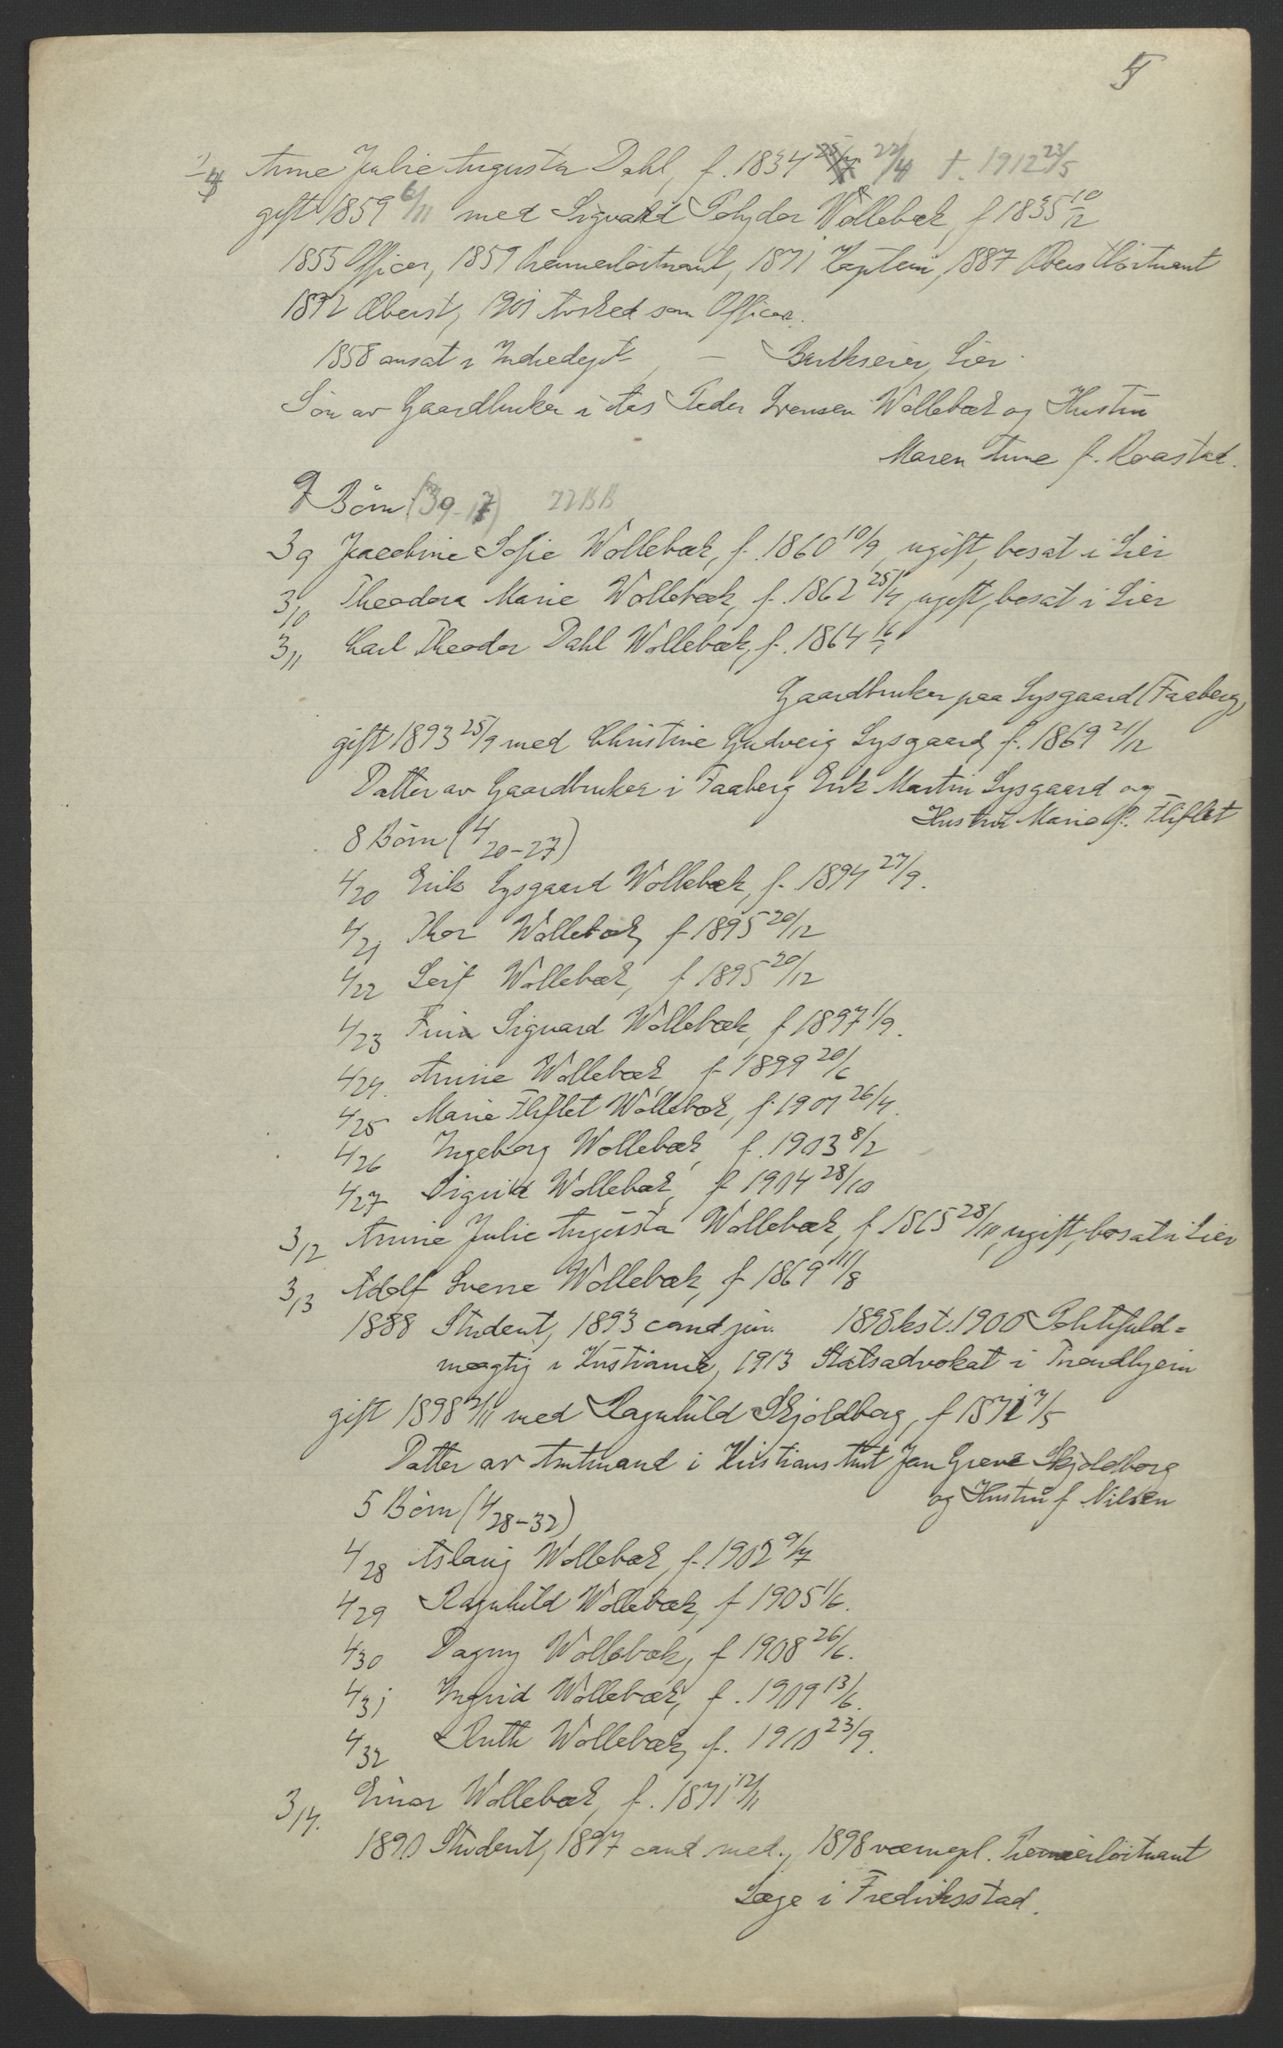 5
2/4 Anne Julie Augusta Dahl, f. 1834 22/4 † 1912 23/5
gift 1859 6/11 med Sigvald Polydor Wollebæk, f 1835 10/12
1855 Officer, 1859 Premierløitnant, 1871 Kaptein, 1887 Oberstløitnant
1892 Oberst, 1901 Avsked som Officer.
1858 ansat i Indredept. — Brukseier, Lier.
Søn av Gaardbruker i Aas Peder Svensen Wollebæk og Hustru
Maren Anne f. Kraastad.
9 Børn (3 9-17) 22 BB
3 9 Jacobine Sofie Wollebæk, f. 1860 10/9, ugift, bosat i Lier
3 10 Theodora Marie Wollebæk, f. 1862 25/4, ugift, bosat i Lier
3 11 Carl Theodor Dahl Wollebæk, f. 1864
Gaardbruker paa Lysgaard, Faaberg,
gift 1893 25/9 med Christine Gudveig Lysgaard, f. 1869 21/12
Datter av Gaardbruker i Faaberg Erik Martin Lysgaard og
Hustru Marie f. Fliflet
8 Børn (4 20-27)
4 20 Erik Lysgaard Wollebæk, f. 1894 27/9.
4 21 Thor Wollebæk, f 1895 20/12
4 22 Leif Wollebæk, f 1895 20/12
4 23 Finn Sigvard Wollebæk, f 1897 1/9.
4 24. Anne Wollebæk f 1899 20/6
4 25 Marie Fliflet Wollebæk, f. 1901 26/4.
4 26 Ingeborg Wollebæk, f. 1903 8/2
4 27 Sigrid Wollebæk, f 1904 28/10
3 12 Anne Julie Augusta Wollebæk, f 1865 28/10, ugift, bosat i Lier
3 13 Adolf Sverre Wollebæk, f 1869 11/8
1888 Student, 1893 cand jur. 1898 kst. 1900 Politifuld=
mægtig i Kristiania, 1913 Statsadvokat i Trondhjem
gift 1898 2/11 med Ragnhild Skjoldborg, f 1871 7/5
Datter av Amtmand i Kristians Amt Jan Greve Skjoldborg
og Hustru f Nilsen
5 Børn (4 28-32)
4 28 Aslaug Wollebæk, f. 1902 9/7
4 29 Ragnhild Wollebæk, f 1905 1/6.
4 30 Dagny Wollebæk, f 1908 26/6.
4 31 Ingrid Wollebæk, f. 1909 13/6.
4 32 Ruth Wollebæk, f. 1910 23/9.
3 14. Einar Wollebæk, f. 1871 12/11
1890 Student, 1897 cand med., 1898 vernepl. Premierløitnant
Læge i Fredriksstad.